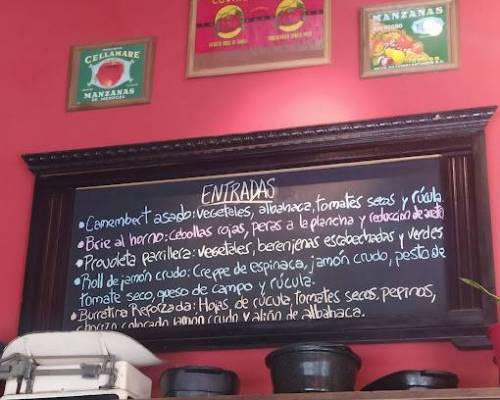 CELLAMARE
MANZANAS
MANZANAS
ENTRADAS
• Camembert asado: vegetales, albahaca, tomates secos y rúcula.
• Brie al horno: cebollas rojas, peras a la plancha y reducción de aceto
• Provoleta parrillera: vegetales, berenjenas escabechadas y verdes
• Roll de jamón crudo: creppe de espinaca, jamón crudo, pesto de
tomate seco, queso de campo y rúcula.
• Burratina Reforzada: Hojas de rúcula, tomates secos, pepinos,
chorizo colorado, jamón crudo y aliño de albahaca.